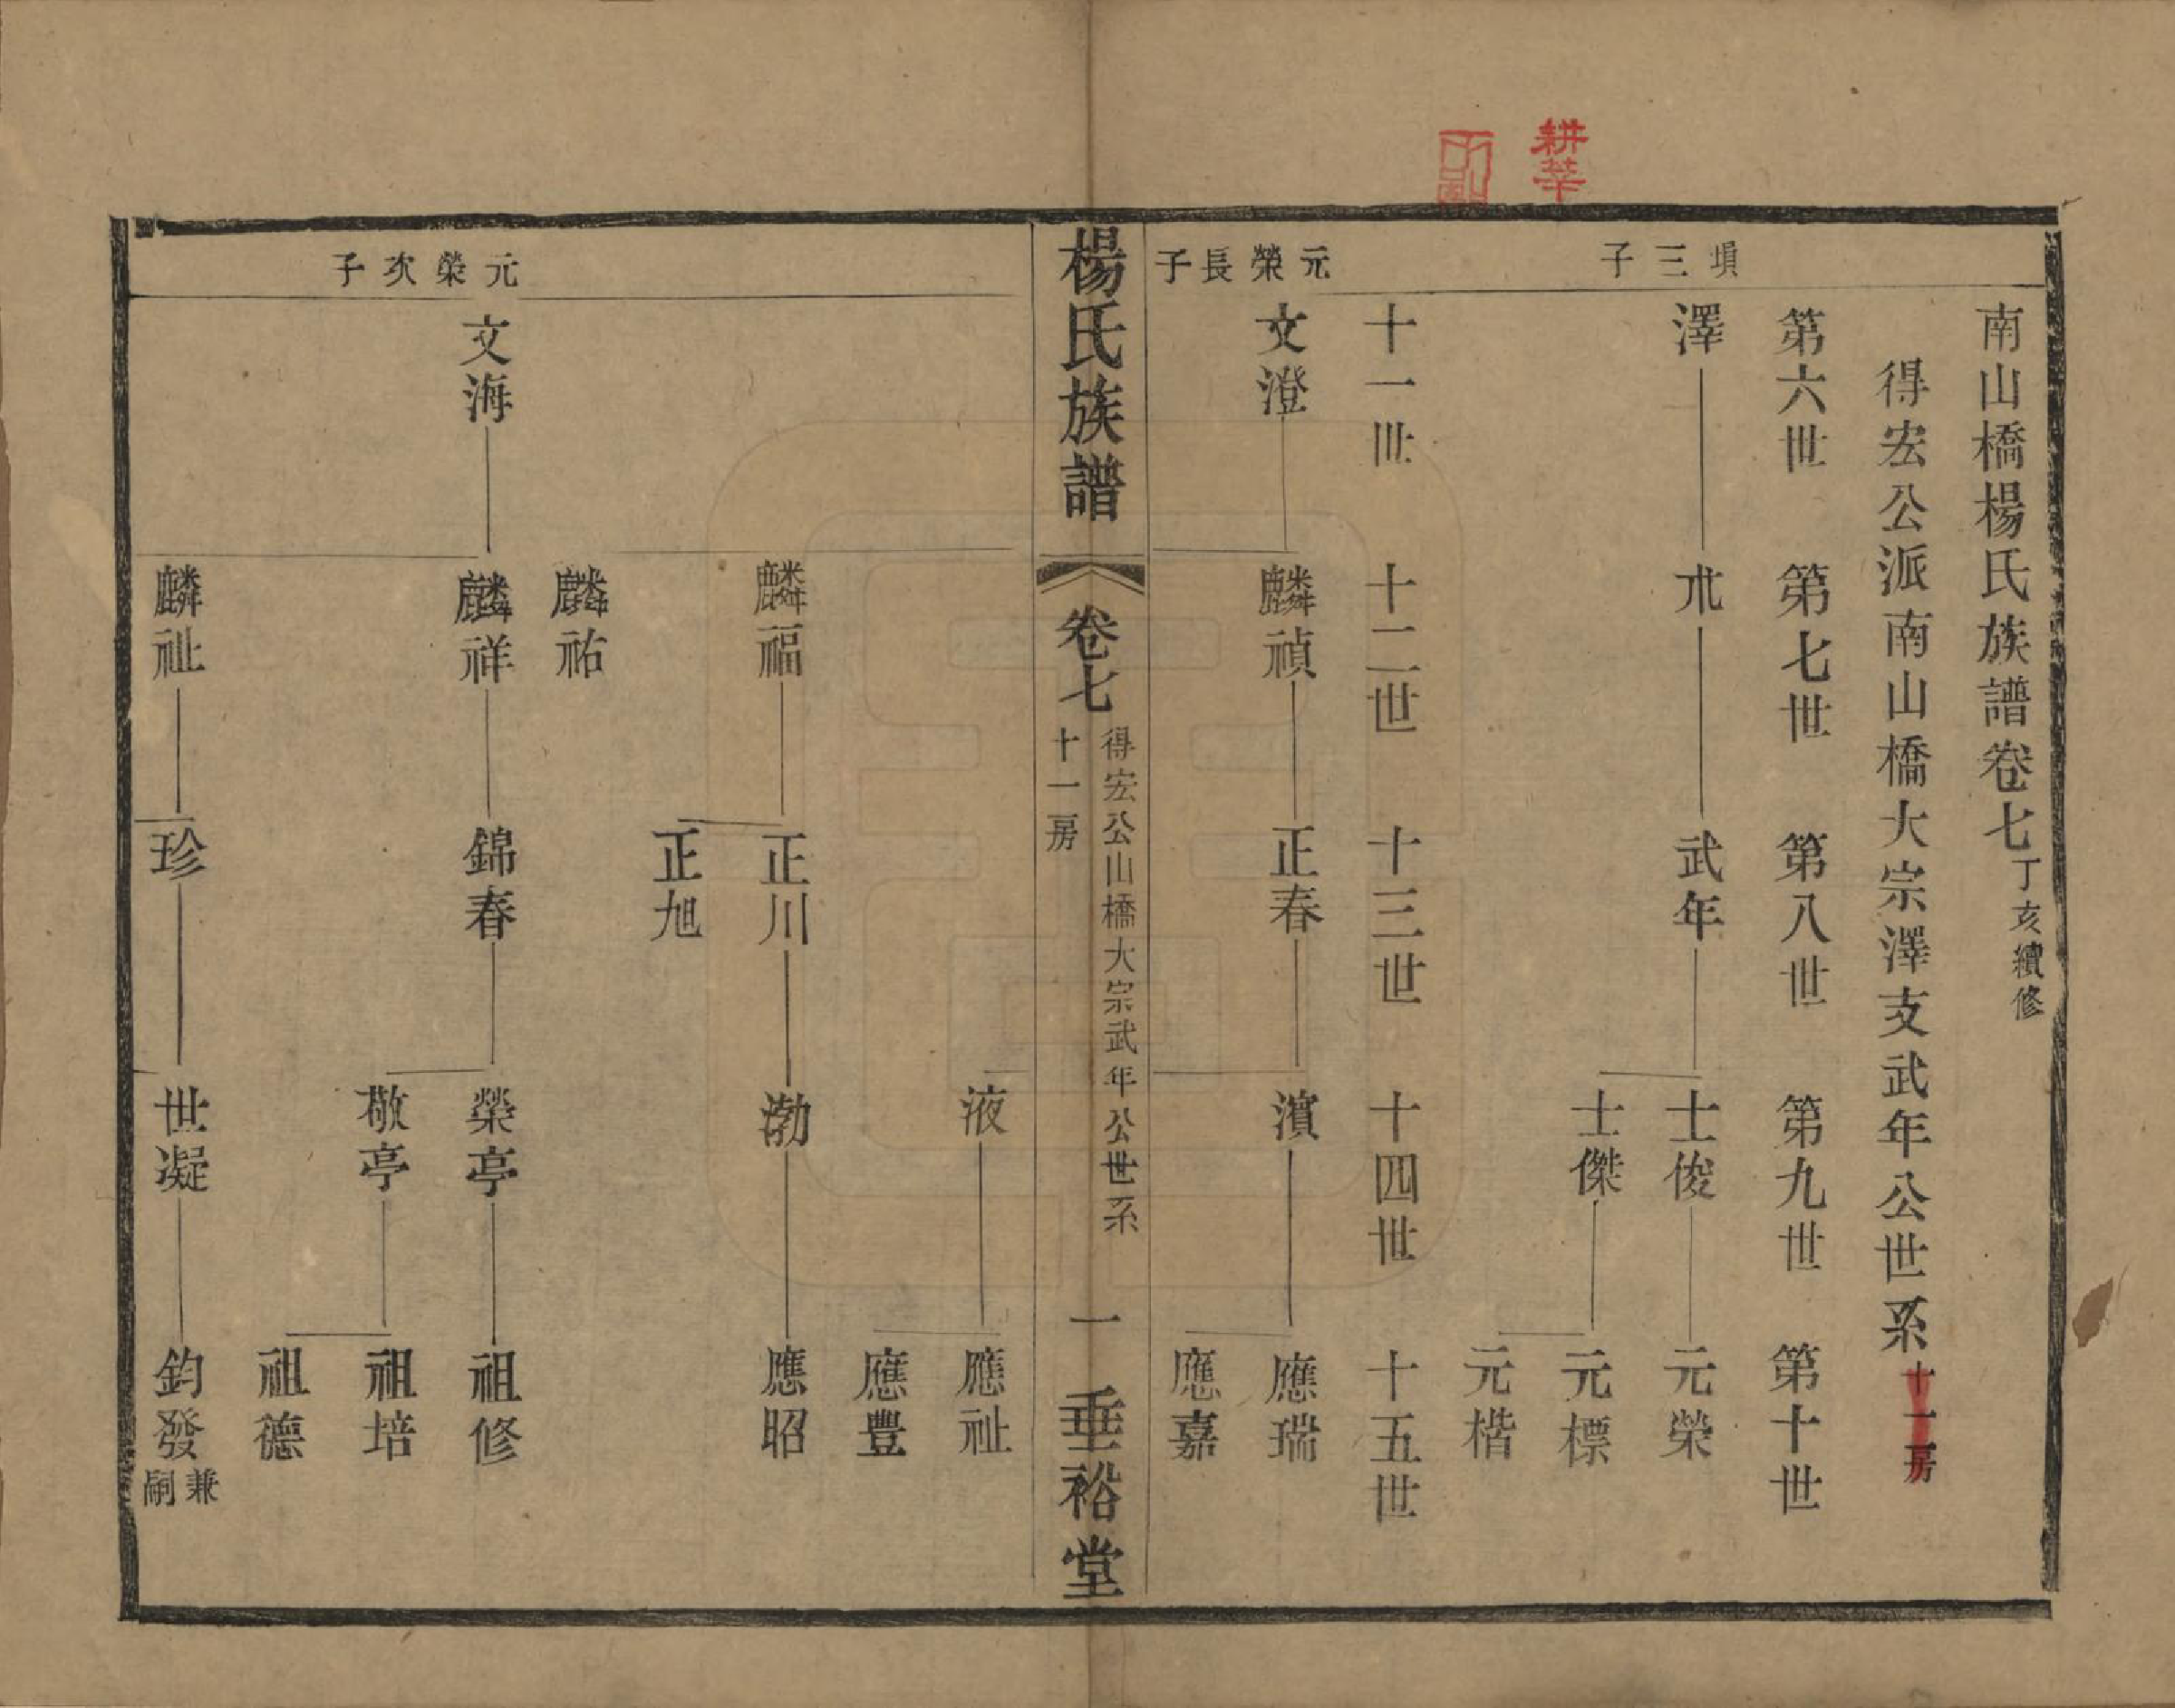 耕莘
南山橋楊氏族譜卷七丁亥續修
得宏公派南山橋大宗澤支武年公世系十一房
第六世 第七世 第八世 第九世 第十世
塤三子
澤 朮 武年 士俊 元榮
士傑 元標
元楷
十一世 十二世 十三世 十四世 十五世
元榮長子
文澄 麟禎 正春 濵 應瑞
應嘉
楊氏族譜 卷七 得宏公山橋大宗武年公世系 十一房 一 垂裕堂
液 應祉
應豊
麟福 正川 渤 應昭
正旭
麟祐
元榮次子
文海 麟祥 錦春 榮亭 祖修
敬亭 祖培
祖德
麟祉 珍 世凝 鈞發兼嗣